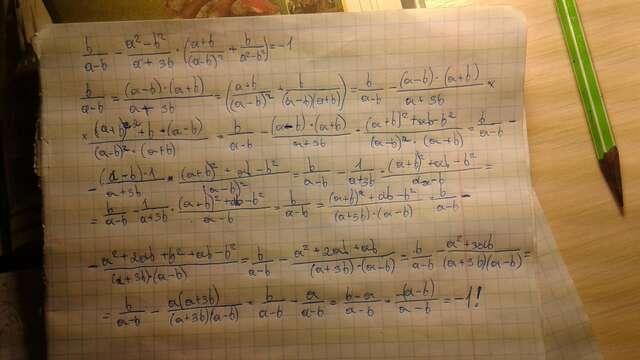 b/(a-b) - (a²-b²)/(a+3b) · ((a+b)/(a-b)² + b/(a²-b²)) = -1
b/(a-b) = ((a-b)·(a+b))/(a+3b) = ((a+b)/(a-b)² + b/((a-b)(a+b))) = b/(a-b) - ((a-b)·(a+b))/(a+3b) ×
× ((a+b)²+b·(a-b))/((a-b)²·(a+b)) = b/(a-b) - ((a-b)·(a+b))/(a+3b) · ((a+b)²+ab-b²)/((a-b)²·(a+b)) = b/(a-b) -
- ((a-b)·1)/(a+3b) · ((a+b)²+ab-b²)/(a-b)² = b/(a-b) - 1/(a+3b) · ((a+b)²+ab-b²)/(a-b) =
= b/(a-b) - 1/(a+3b) · ((a+b)²+ab-b²)/(a-b) = b/(a-b) = ((a+b)²+ab-b²)/((a+3b)·(a-b)) = b/(a-b) -
- (a²+2ab+b²+ab-b²)/((a+3b)·(a-b)) = b/(a-b) - (a²+2ab+ab)/((a+3b)·(a-b)) = b/(a-b) - (a²+3ab)/((a+3b)(a-b)) =
= b/(a-b) - (a(a+3b))/((a+3b)(a-b)) = b/(a-b) - a/(a-b) = (b-a)/(a-b) = (-(a-b))/(a-b) = -1!